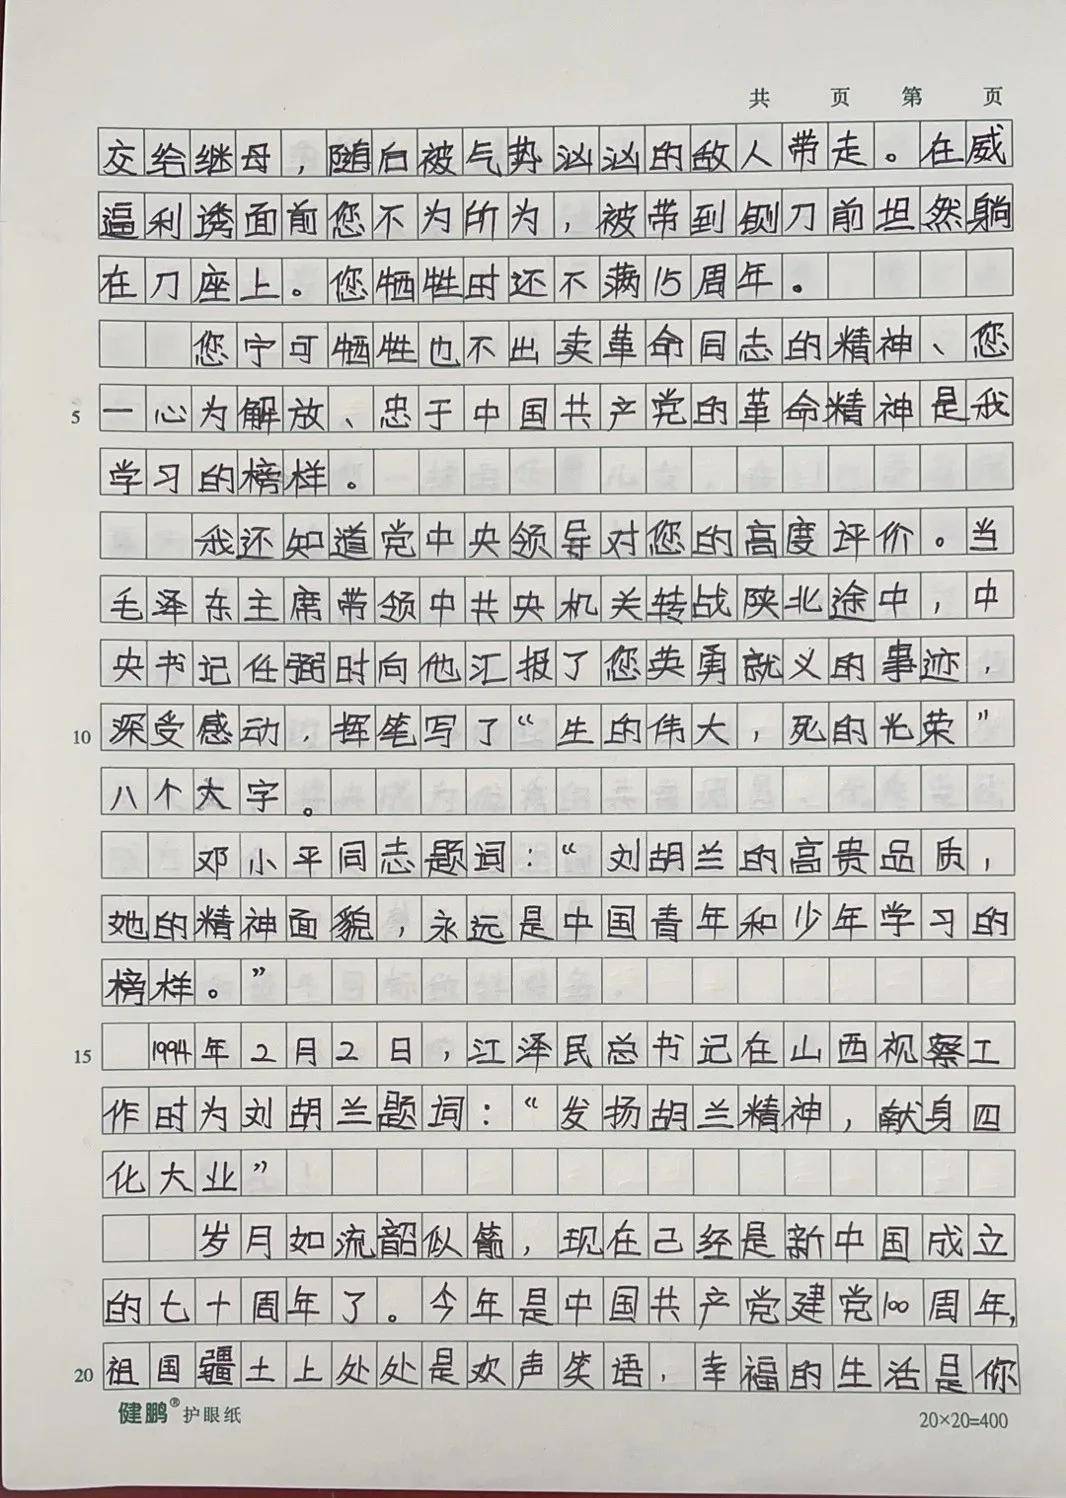 共 页 第 页
交给继母，随后被气势汹汹的敌人带走。在威
逼利诱面前您不为所为，被带到铡刀前坦然躺
在刀座上。您牺牲时还不满15周年。
您宁可牺牲也不出卖革命同志的精神、您
5 一心为解放、忠于中国共产党的革命精神是我
学习的榜样。
我还知道党中央领导对您的高度评价。当
毛泽东主席带领中共央机关转战陕北途中，中
央书记任弼时向他汇报了您英勇就义的事迹，
10 深受感动，挥笔写了“生的伟大，死的光荣”
八个大字。
邓小平同志题词：“刘胡兰的高贵品质，
她的精神面貌，永远是中国青年和少年学习的
榜样。”
15 1994年2月2日，江泽民总书记在山西视察工
作时为刘胡兰题词：“发扬胡兰精神，献身四
化大业”
岁月如流韶似箭，现在己经是新中国成立
的七十周年了。今年是中国共产党建党100周年，
20 祖国疆土上处处是欢声笑语，幸福的生活是你
健鹏®护眼纸 20×20=400